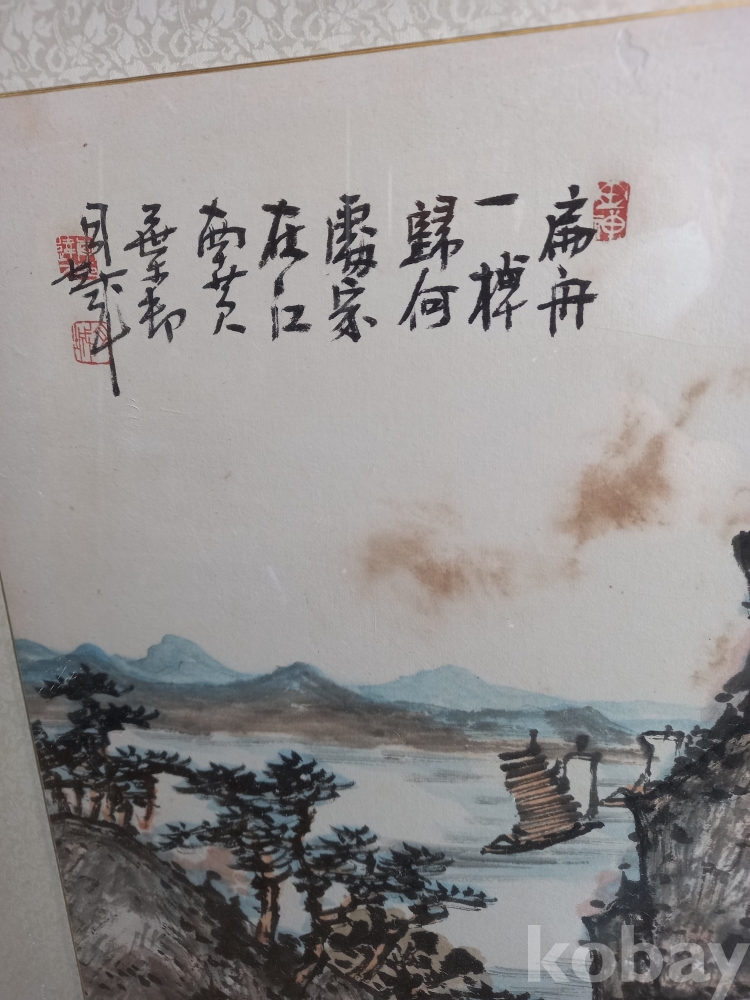 扁舟
一棹
歸何
處家
在江
南黃
葉邨
kobay